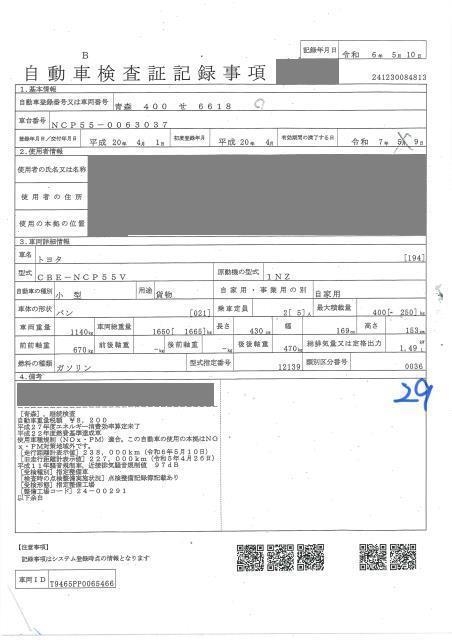 B
記録年月日 令和 6年 5月 10日
自動車検査証記録事項
241230084813
1.基本情報
自動車登録番号又は車両番号 青森 400 せ 6618
車台番号 NCP55-0063037
登録年月日/交付年月日 平成 20年 4月 1日 初度登録年月 平成 20年 4月 有効期間の満了する日 令和 7年 5月 9日
2.使用者情報
使用者の氏名又は名称
使用者の住所
使用の本拠の位置
3.車両詳細情報
車名 トヨタ [194]
型式 CBE-NCP55V 原動機の型式 1NZ
自動車の種別 小型 用途 貨物 自家用・事業用の別 自家用
車体の形状 バン [021] 乗車定員 2[ 5]人 最大積載量 400[ 250]kg
車両重量 1140kg 車両総重量 1650[ 1665]kg 長さ 430cm 幅 169cm 高さ 153cm
前前軸重 670kg 前後軸重 -kg 後前軸重 -kg 後後軸重 470kg 総排気量又は定格出力 1.49 kW L
燃料の種類 ガソリン 型式指定番号 12139 類別区分番号 0036
4.備考
29
[青森], 継続検査
自動車重量税額 ¥8,200
平成27年度エネルギー消費効率算定未了
平成22年度燃費基準達成車
使用車種規制(NOx・PM)適合。この自動車の使用の本拠はNO
x・PM対策地域外です。
[走行距離計表示値] 238,000km (令和6年5月10日)
[旧走行距離計表示値] 227,000km (令和5年4月26日)
平成11年騒音規制車、近接排気騒音規制値 97dB
[受検種別] 指定整備車
[検査時の点検整備実施状況] 点検整備記録簿記載あり
[受検形態] 指定整備工場
[整備工場コード] 24-00291
以下余白
【注意事項】
記録事項はシステム登録時点の情報となります
車両ID T9465PP0065466